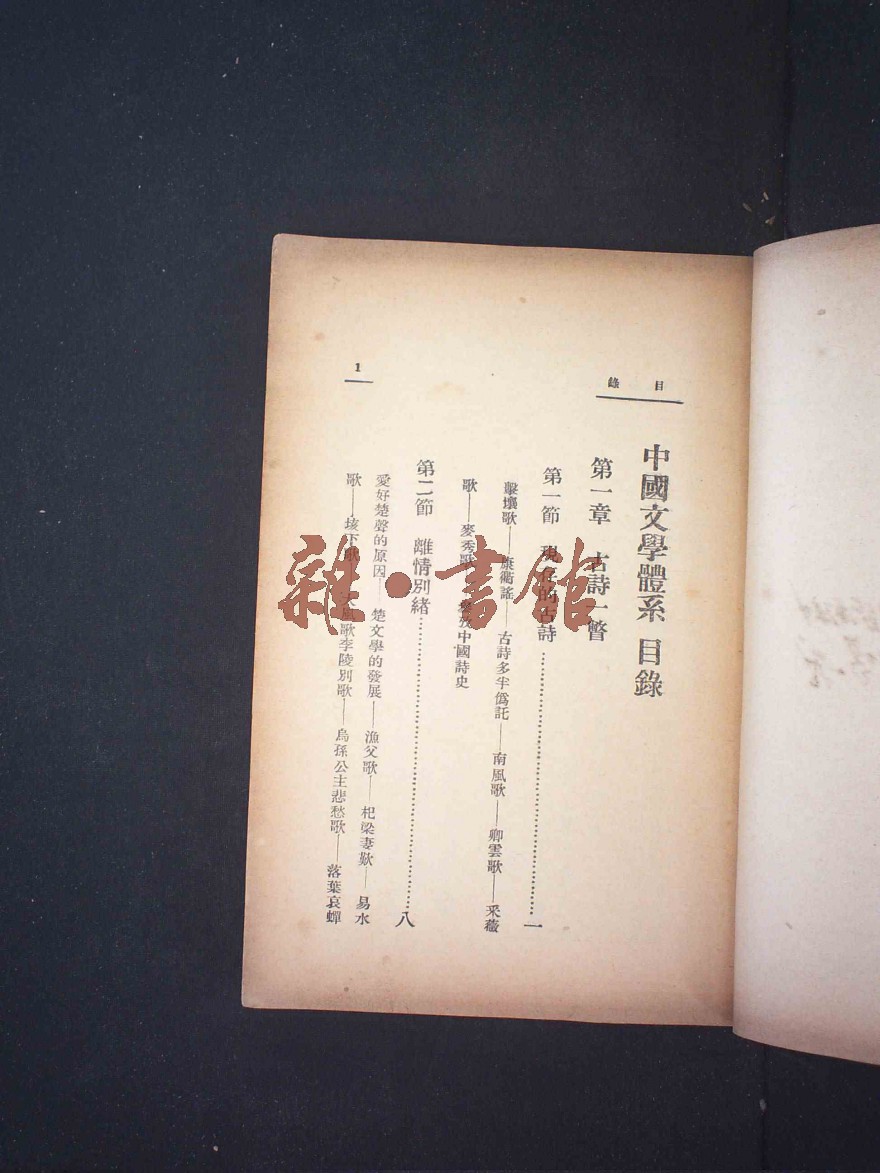 目 錄
中國文學體系 目錄
第一章 古詩一瞥
第一節 現存的古詩……一
擊壤歌——康衢謠——古詩多半僞託——南風歌——卿雲歌——采薇
歌——麥秀歌 中國詩史
第二節 離情別緒……八
愛好楚聲的原因——楚文學的發展——漁父歌——杞梁妻歎——易水
歌——垓下歌 歌李陵別歌——烏孫公主悲愁歌——落葉哀蟬
1
雜·書館